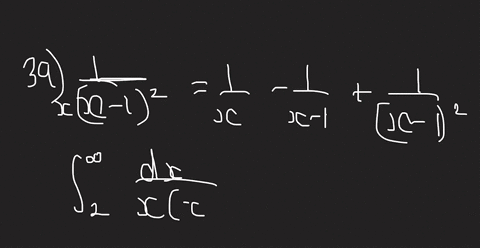 39) 1/x(x-1)² = 1/x - 1/x-1 + 1/(x-1)²
∫₂^∞ dx/x(x